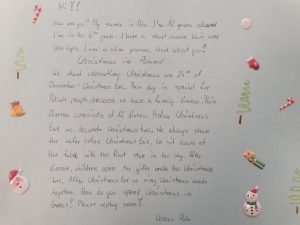 Hi Y!
How are you? My name is Ada. I'm 12 years old and
I'm in the 6th grade. I have a short, brown hair and
blue eyes. I am a slim person. What about you?
Christmas in Poland
We start celebrating Christmas on 24th of
December - Christmas Eve. This day is special for
Polish people because we have a family dinner. This
dinner consists of 12 dishes. Before Christmas
Eve we decorate Christmas tree. We always share
the wafer before Christmas Eve. We sit down at
the table with the first star in the sky. After
dinner, children open the gifts under the Christmas
tree. After Christmas Eve we sing Christmas carols
together. How do you spend Christmas in
Greece? Please replay soon!